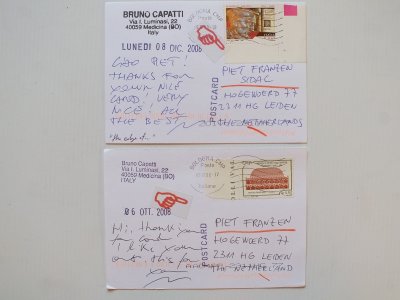 BRUNO CAPATTI
Via I. Luminasi, 22
40059 Medicina (BO)
Italy
LUNEDI 08 DIC. 2008
CIAO PIET!
THANKS FOR
YOUR NICE
CARD! VERY
NICE! ALL
THE BEST
BOLOGNA CMP
Poste
POSTCARD
PIET FRANZEN
SIDAC
HOGEWOERD 77
2311 HG LEIDEN
THE NETHERLANDS
Bruno Capatti
Via I. Luminasi, 22
40059 Medicina (BO)
ITALY
06 OTT. 2008
Hi, thank you
for card
I like your
BOLOGNA CMP
Poste
Italiane
POSTCARD
PIET FRANZEN
HOGEWOERD 77
2311 HG LEIDEN
THE NETHERLAND